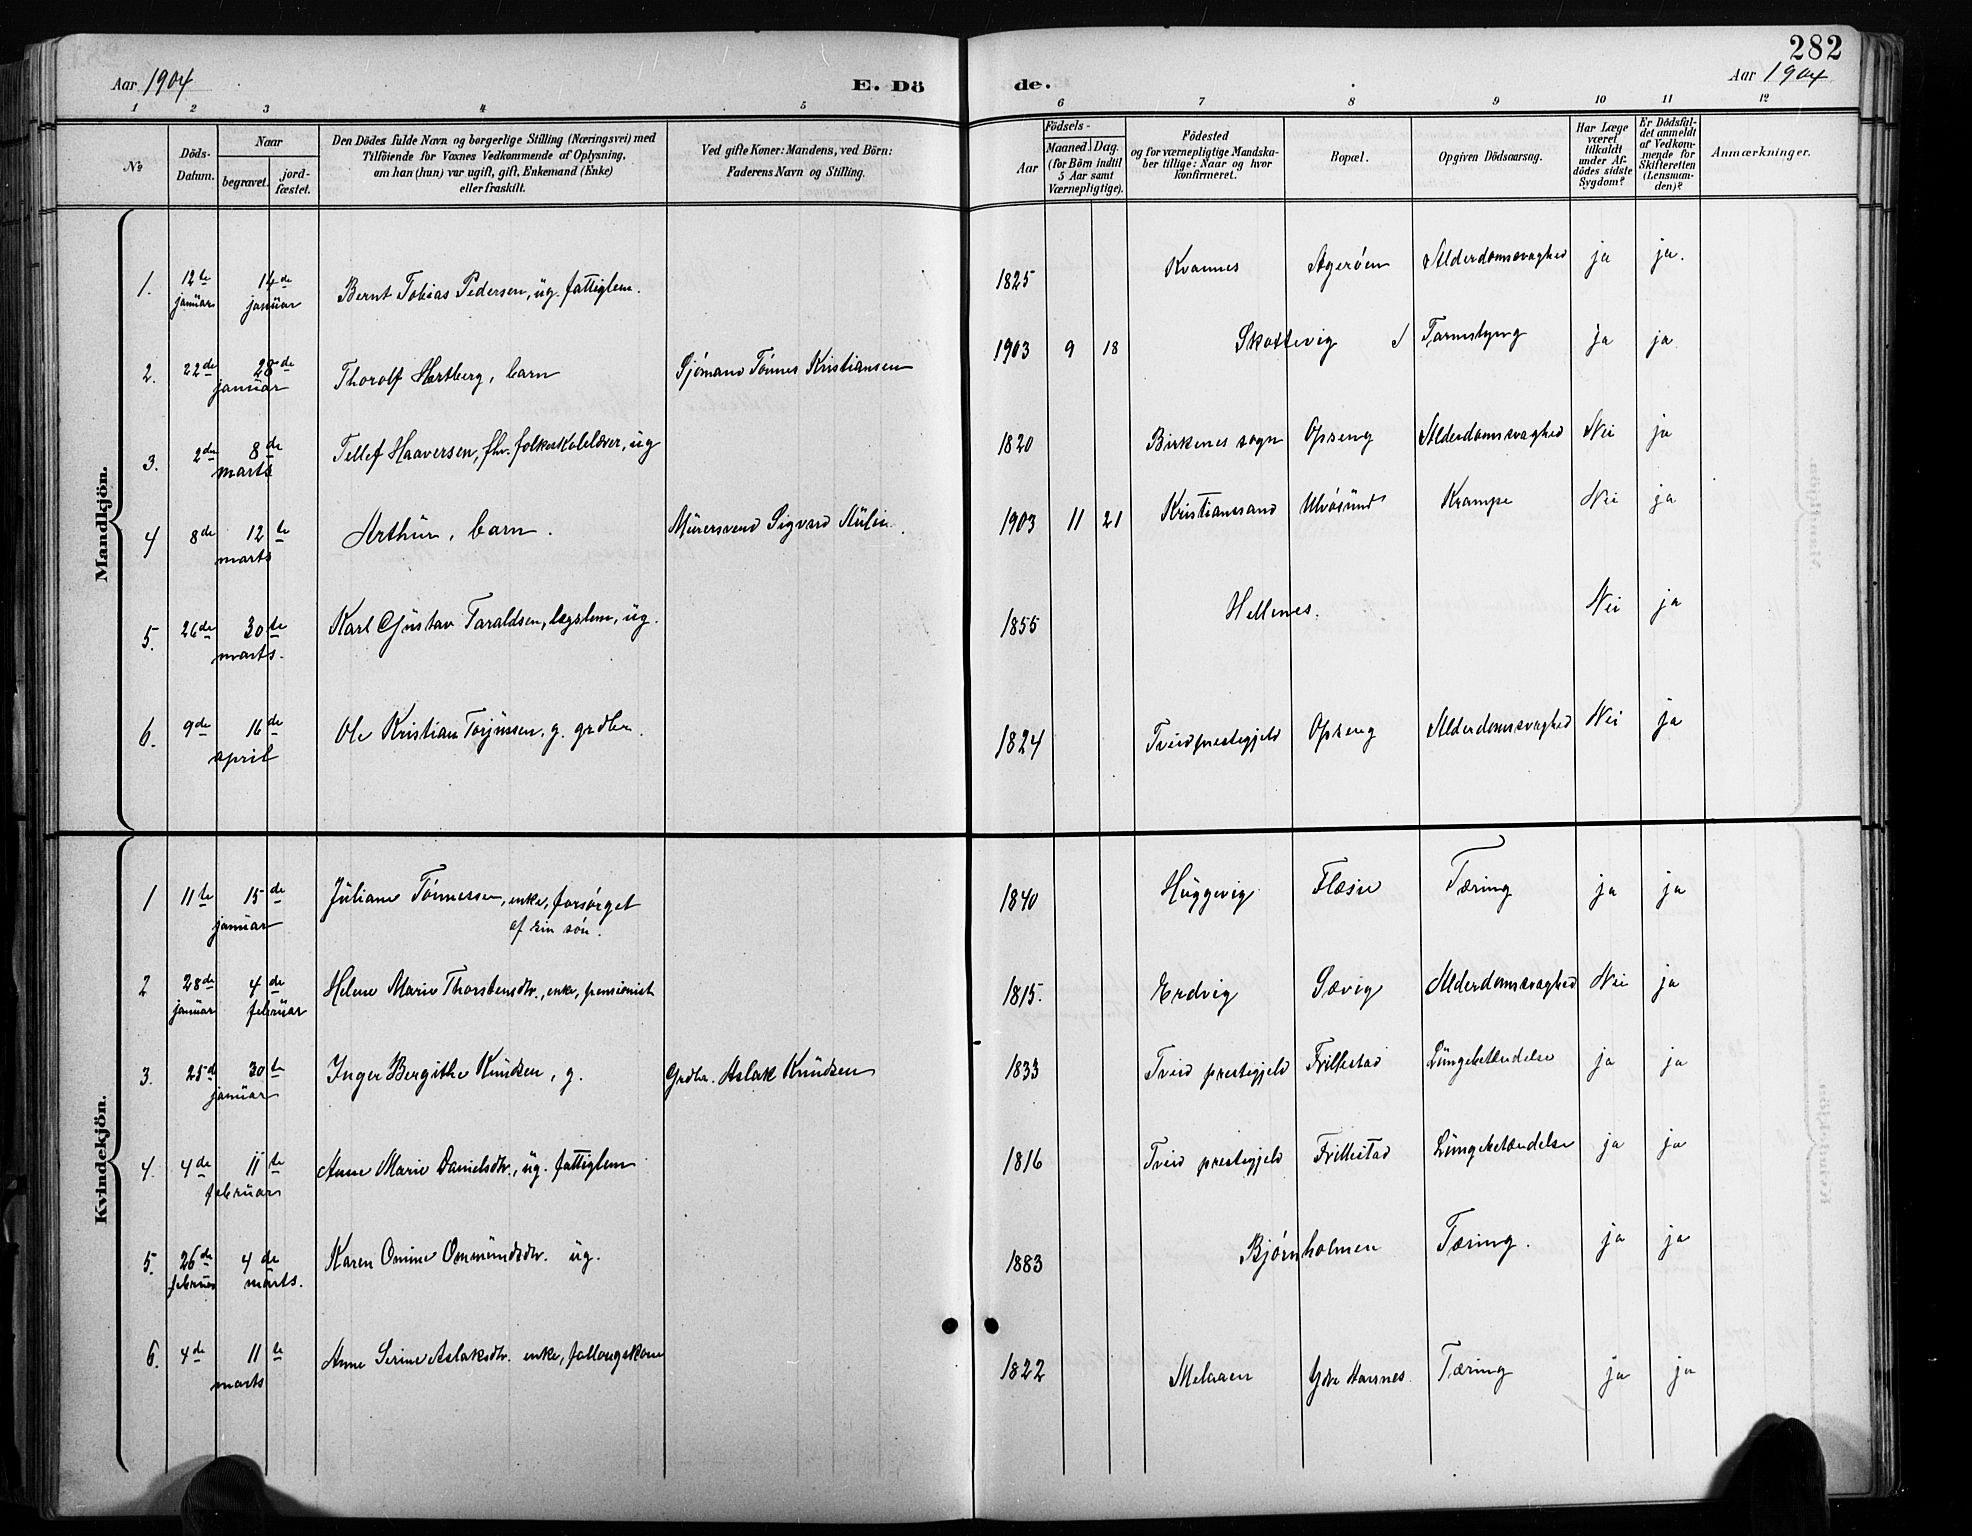 282
Aar 1904
E. Dö
de.
Aar 1904
1 2 3 4 5 6 7 8 9 10 11 12
No
Döds-
Datum.
Naar
begravet.
jord-
fæstet.
Den Dödes fulde Navn og borgerlige Stilling (Næringsvei) med
Tilföiende for Voxnes Vedkommende af Oplysning,
om han (hun) var ugift, gift, Enkemand (Enke)
eller fraskilt.
Ved gifte Koner: Mandens, ved Börn:
Faderens Navn og Stilling.
Födsels-
Aar
Maaned. Dag.
(for Börn indtil
5 Aar samt
Værnepligtige).
Födested
og for værnepligtige Mandska-
ber tillige: Naar og hvor
konfirmeret.
Bopæl.
Opgiven Dödsaarsag.
Har Læge
været
tilkaldt
under Af-
dödes sidste
Sygdom?
Er Dödsfal-
det anmeldt
af Vedkom-
mende for
Skifteretten
(Lensman-
den)?
Anmærkninger.
Mandkjön.
1. 12te januar 14de januar Bernt Tobias Pedersen, ug. fattiglem. 1825 Kvannes Agerøen Alderdomssvaghed ja ja.
2. 22de 28de januar Thorolf Hartberg, barn Sjømand Tønnes Kristiansen 1903 9 18 Skottevig Tarmslyng ja ja
3. 2den 8de marts Tellef Haaversen, fhv. folkeskolelærer, ug 1820 Birkenes sogn Opseng Alderdomssvaghed Nei ja
4 8de 12te marts Arthur, barn. Murersvend Sigvard 1903 11 21 Kristianssand Ulvøsund Krampe Nei ja
5. 26de 30te marts. Karl Gustav Taraldsen, lægslem, ug. 1855 Hellenes. Nei ja
6. 9de 16de april Ole Kristian Torjussen, g. grdbr. 1824 Tveid prestegjeld Opseng Alderdomssvaghed Nei ja
Kvindekjön.
1 11te 15de januar Juliane Tønnessen, enke, forsørget
af sin søn. 1840 Huggevig Flæsie Tæring ja ja
2 28de januar 4de februar Helene Marie Thorstensdtr., enke, pensionist 1815. Erdvig Sævig Alderdomssvaghed Nei ja
3. 25d 30te januar Inger Bergithe Knudsen, g. Grdbr. Aslak Knudsen 1833 Tveid prestegjeld Frillestad Lungebetændelse ja ja
4. 4de 11te februar Anne Marie Danielsdtr., ug. fattiglem 1816 Tveid prestegjeld Frillestad Lungebetændelse ja ja
5. 26de februar 4de marts. Karen Omine Ommundsdtr. ug. 1883 Bjørnholmen Tæring. ja ja
6. 4de 11te marts Anne Serine Aslaksdtr. enke, 1822 Melaaen Ydre Haanes Tæring ja ja